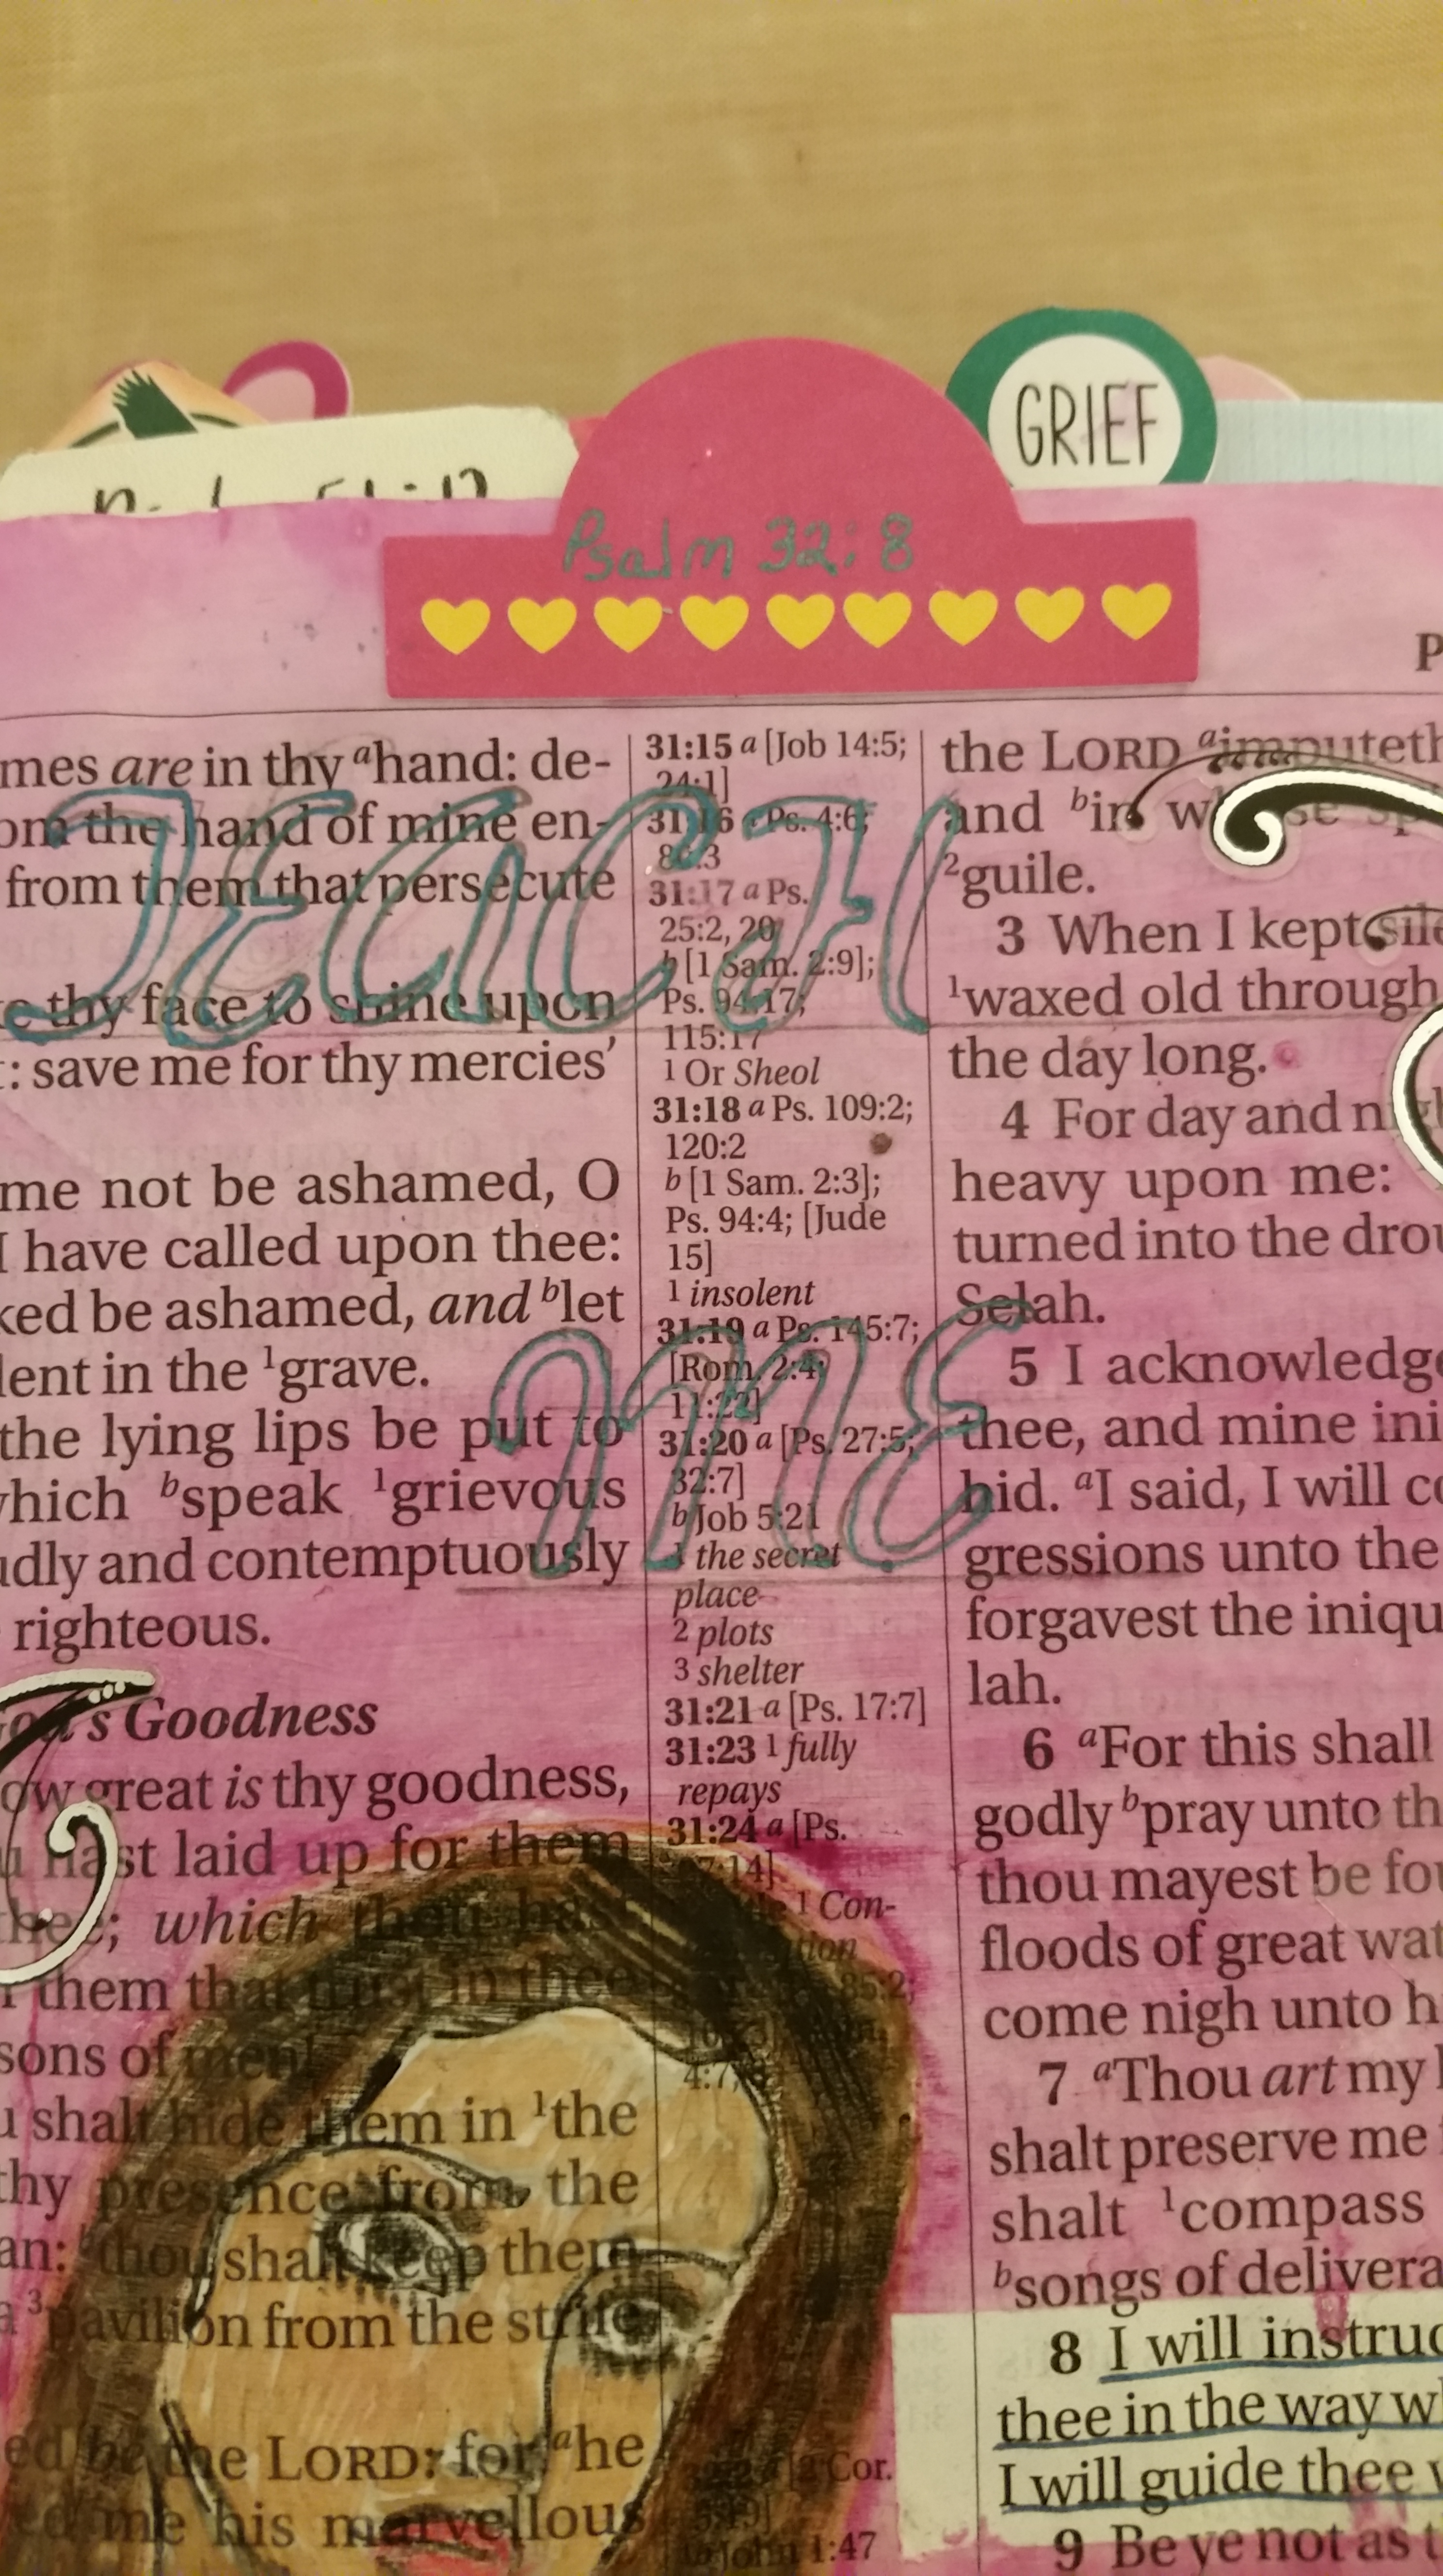 GRIEF
Psalm 32:8
P
TEACH
ME
mes are in thy ahand: de-
om the hand of mine en-
from them that persecute
e thy face to shine upon
: save me for thy mercies'
me not be ashamed, O
I have called upon thee:
ked be ashamed, and blet
lent in the 1grave.
the lying lips be put to
which bspeak 1grievous
udly and contemptuously
righteous.
God's Goodness
ow great is thy goodness,
u hast laid up for them
thee; which thou hast
r them that trust in thee
sons of men!
u shalt hide them in 1the
thy presence from the
an: bthou shalt keep them
a 3pavilion from the strife
ed be the LORD: for ahe
ed me his marvellous
31:15 a [Job 14:5;
24:1]
31:16 a Ps. 4:6;
80:3
31:17 a Ps.
25:2, 20
b [1 Sam. 2:9];
Ps. 94:17;
115:17
1 Or Sheol
31:18 a Ps. 109:2;
120:2
b [1 Sam. 2:3];
Ps. 94:4; [Jude
15]
1 insolent
31:19 a Ps. 145:7;
[Rom. 2:4;
11:22]
31:20 a [Ps. 27:5;
32:7]
b Job 5:21
1 the secret
place
2 plots
3 shelter
31:21 a [Ps. 17:7]
31:23 1 fully
repays
31:24 a [Ps.
27:14]
1 Con-
85:2;
4:7,
Cor.
John 1:47
the LORD aimputeth
and bin whose sp
2guile.
3 When I kept sile
1waxed old through
the day long.
4 For day and nigh
heavy upon me:
turned into the drou
Selah.
5 I acknowledge
thee, and mine ini
hid. aI said, I will co
gressions unto the
forgavest the iniqu
lah.
6 aFor this shall
godly bpray unto th
thou mayest be fou
floods of great wat
come nigh unto h
7 aThou art my
shalt preserve me
shalt 1compass
bsongs of delivera
8 I will instruc
thee in the way w
I will guide thee w
9 Be ye not as t